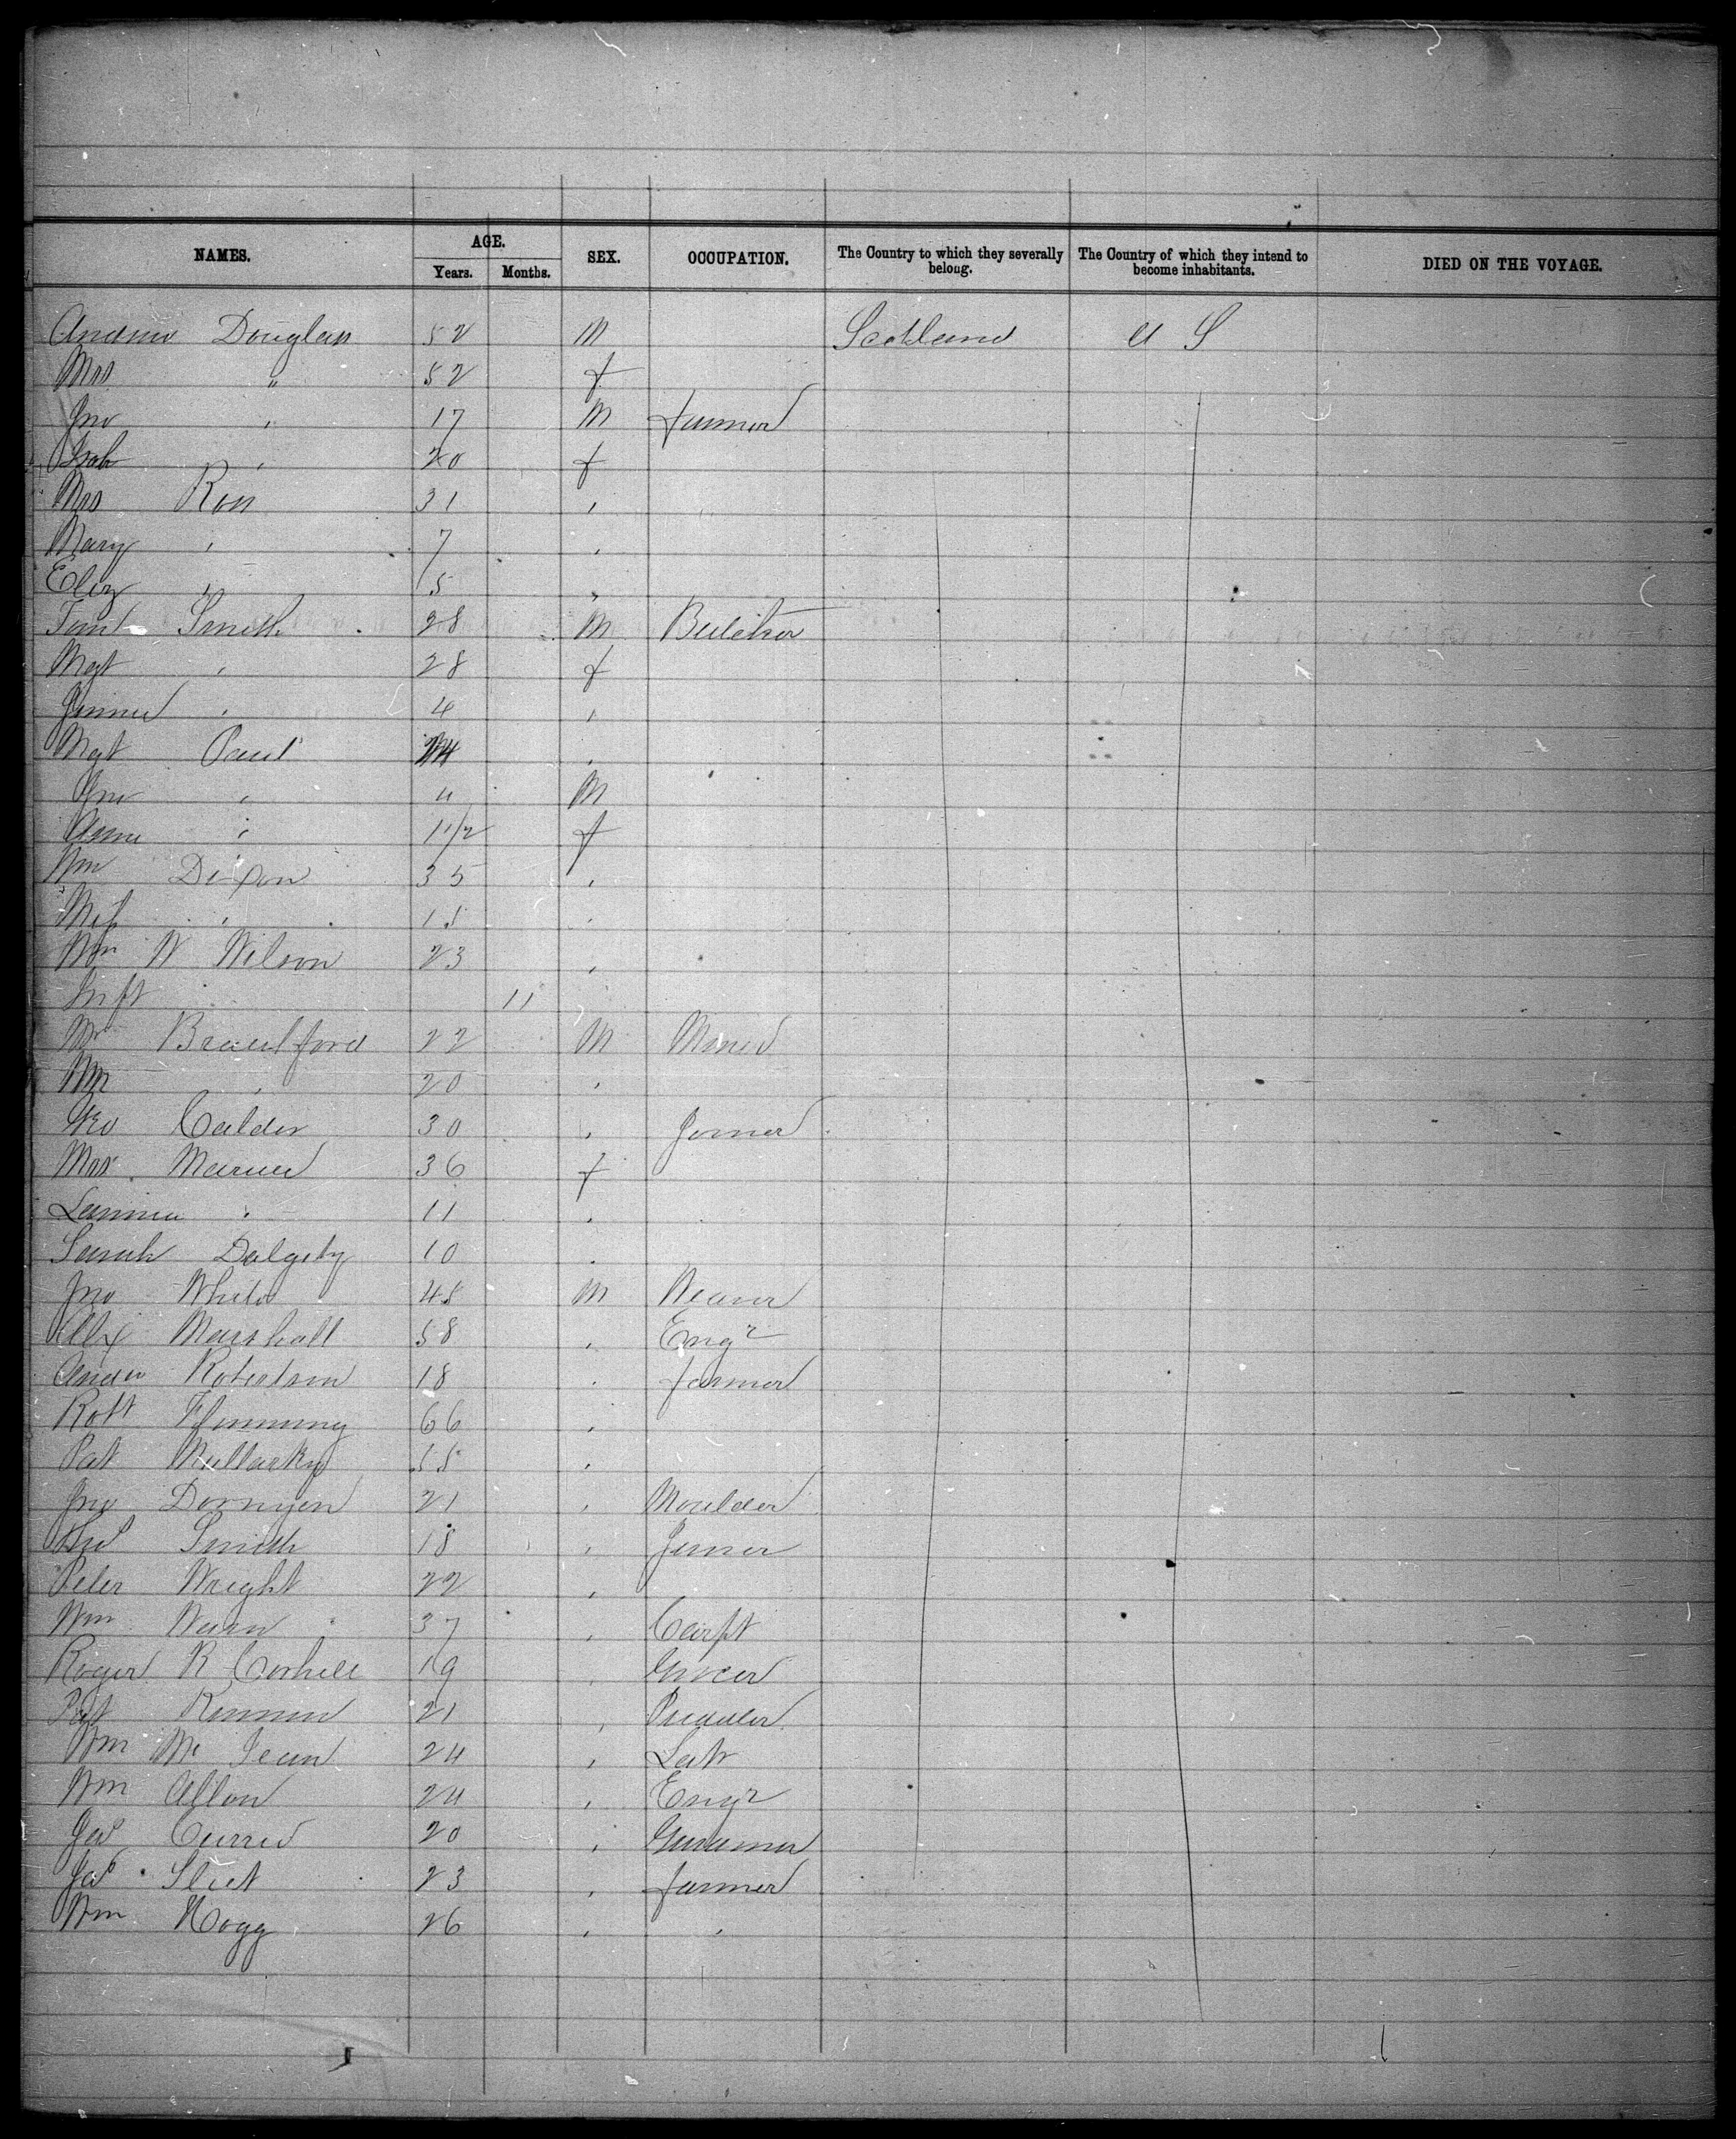 NAMES. AGE. Years. Months. SEX. OCCUPATION. The Country to which they severally belong. The Country of which they intend to become inhabitants. DIED ON THE VOYAGE.
Andrew Douglass 52 M Scotland U S
Mrs " 52 f
Jno " 17 M farmer
Isab " 20 f
Mrs Ross 31 "
Mary " 7 "
Eliz " 5 "
Smith 28 M Butcher
Mgt " 28 f
" 4 "
Mgt Paul "
Jno " 4 M
" 1 1/2 f
Dixon 35 "
Miss " 15 "
W Wilson 23 "
Inft 11
Braulford 22 M Miner
" 20 "
Geo Calder 30 " Joiner
Mrs 36 f
" 11 "
Sarah Dalgety 10 "
Jno White 45 M Weaver
Alex Marshall 58 " Engr
Andw Robertson 18 " farmer
Robt Flemming 66 "
Pat Mullarky 55 "
Jno 21 " Moulder
Smith 18 " Joiner
Peter Wright 22 "
Wm 37 " Carpt
Roger R 19 " Grocer
Pat 21 " Puddler
Wm Mc 24 " Labr
Wm Allan 24 " Engr
Jas Currie 20 "
Jas 23 " farmer
Wm Hogg 26 " "